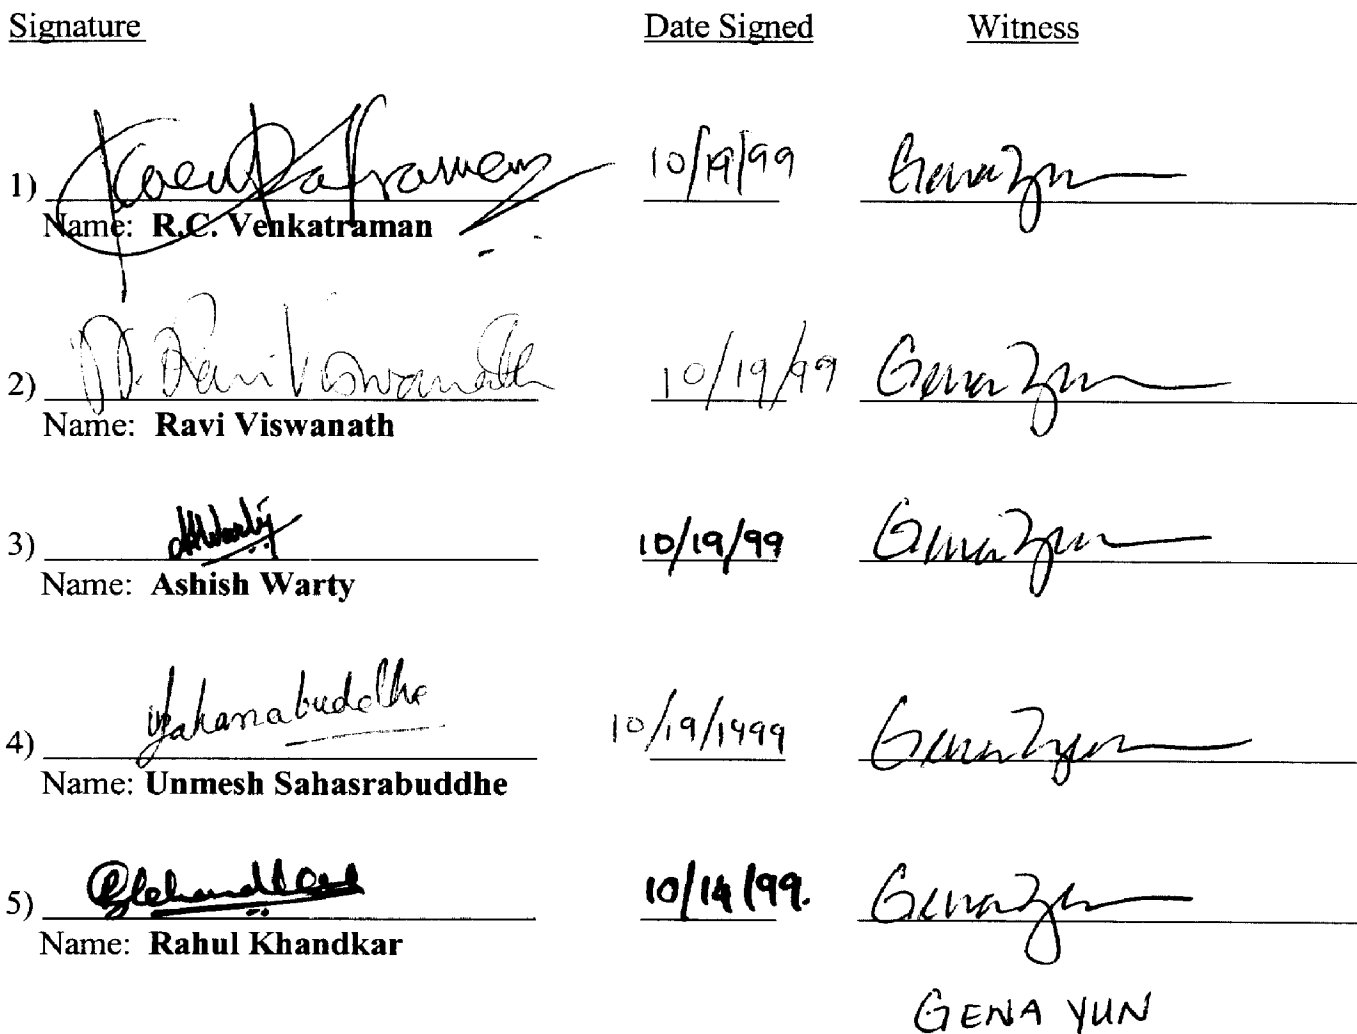 Signature Date Signed Witness
1) 10/19/99 Gena Yun
Name: R.C. Venkatraman
2) Ravi Viswanath 10/19/99 Gena Yun
Name: Ravi Viswanath
3) AWarty 10/19/99 Gena Yun
Name: Ashish Warty
4) 10/19/1999 Gena Yun
Name: Unmesh Sahasrabuddhe
5) Gena Yun
Name: Rahul Khandkar
GENA YUN